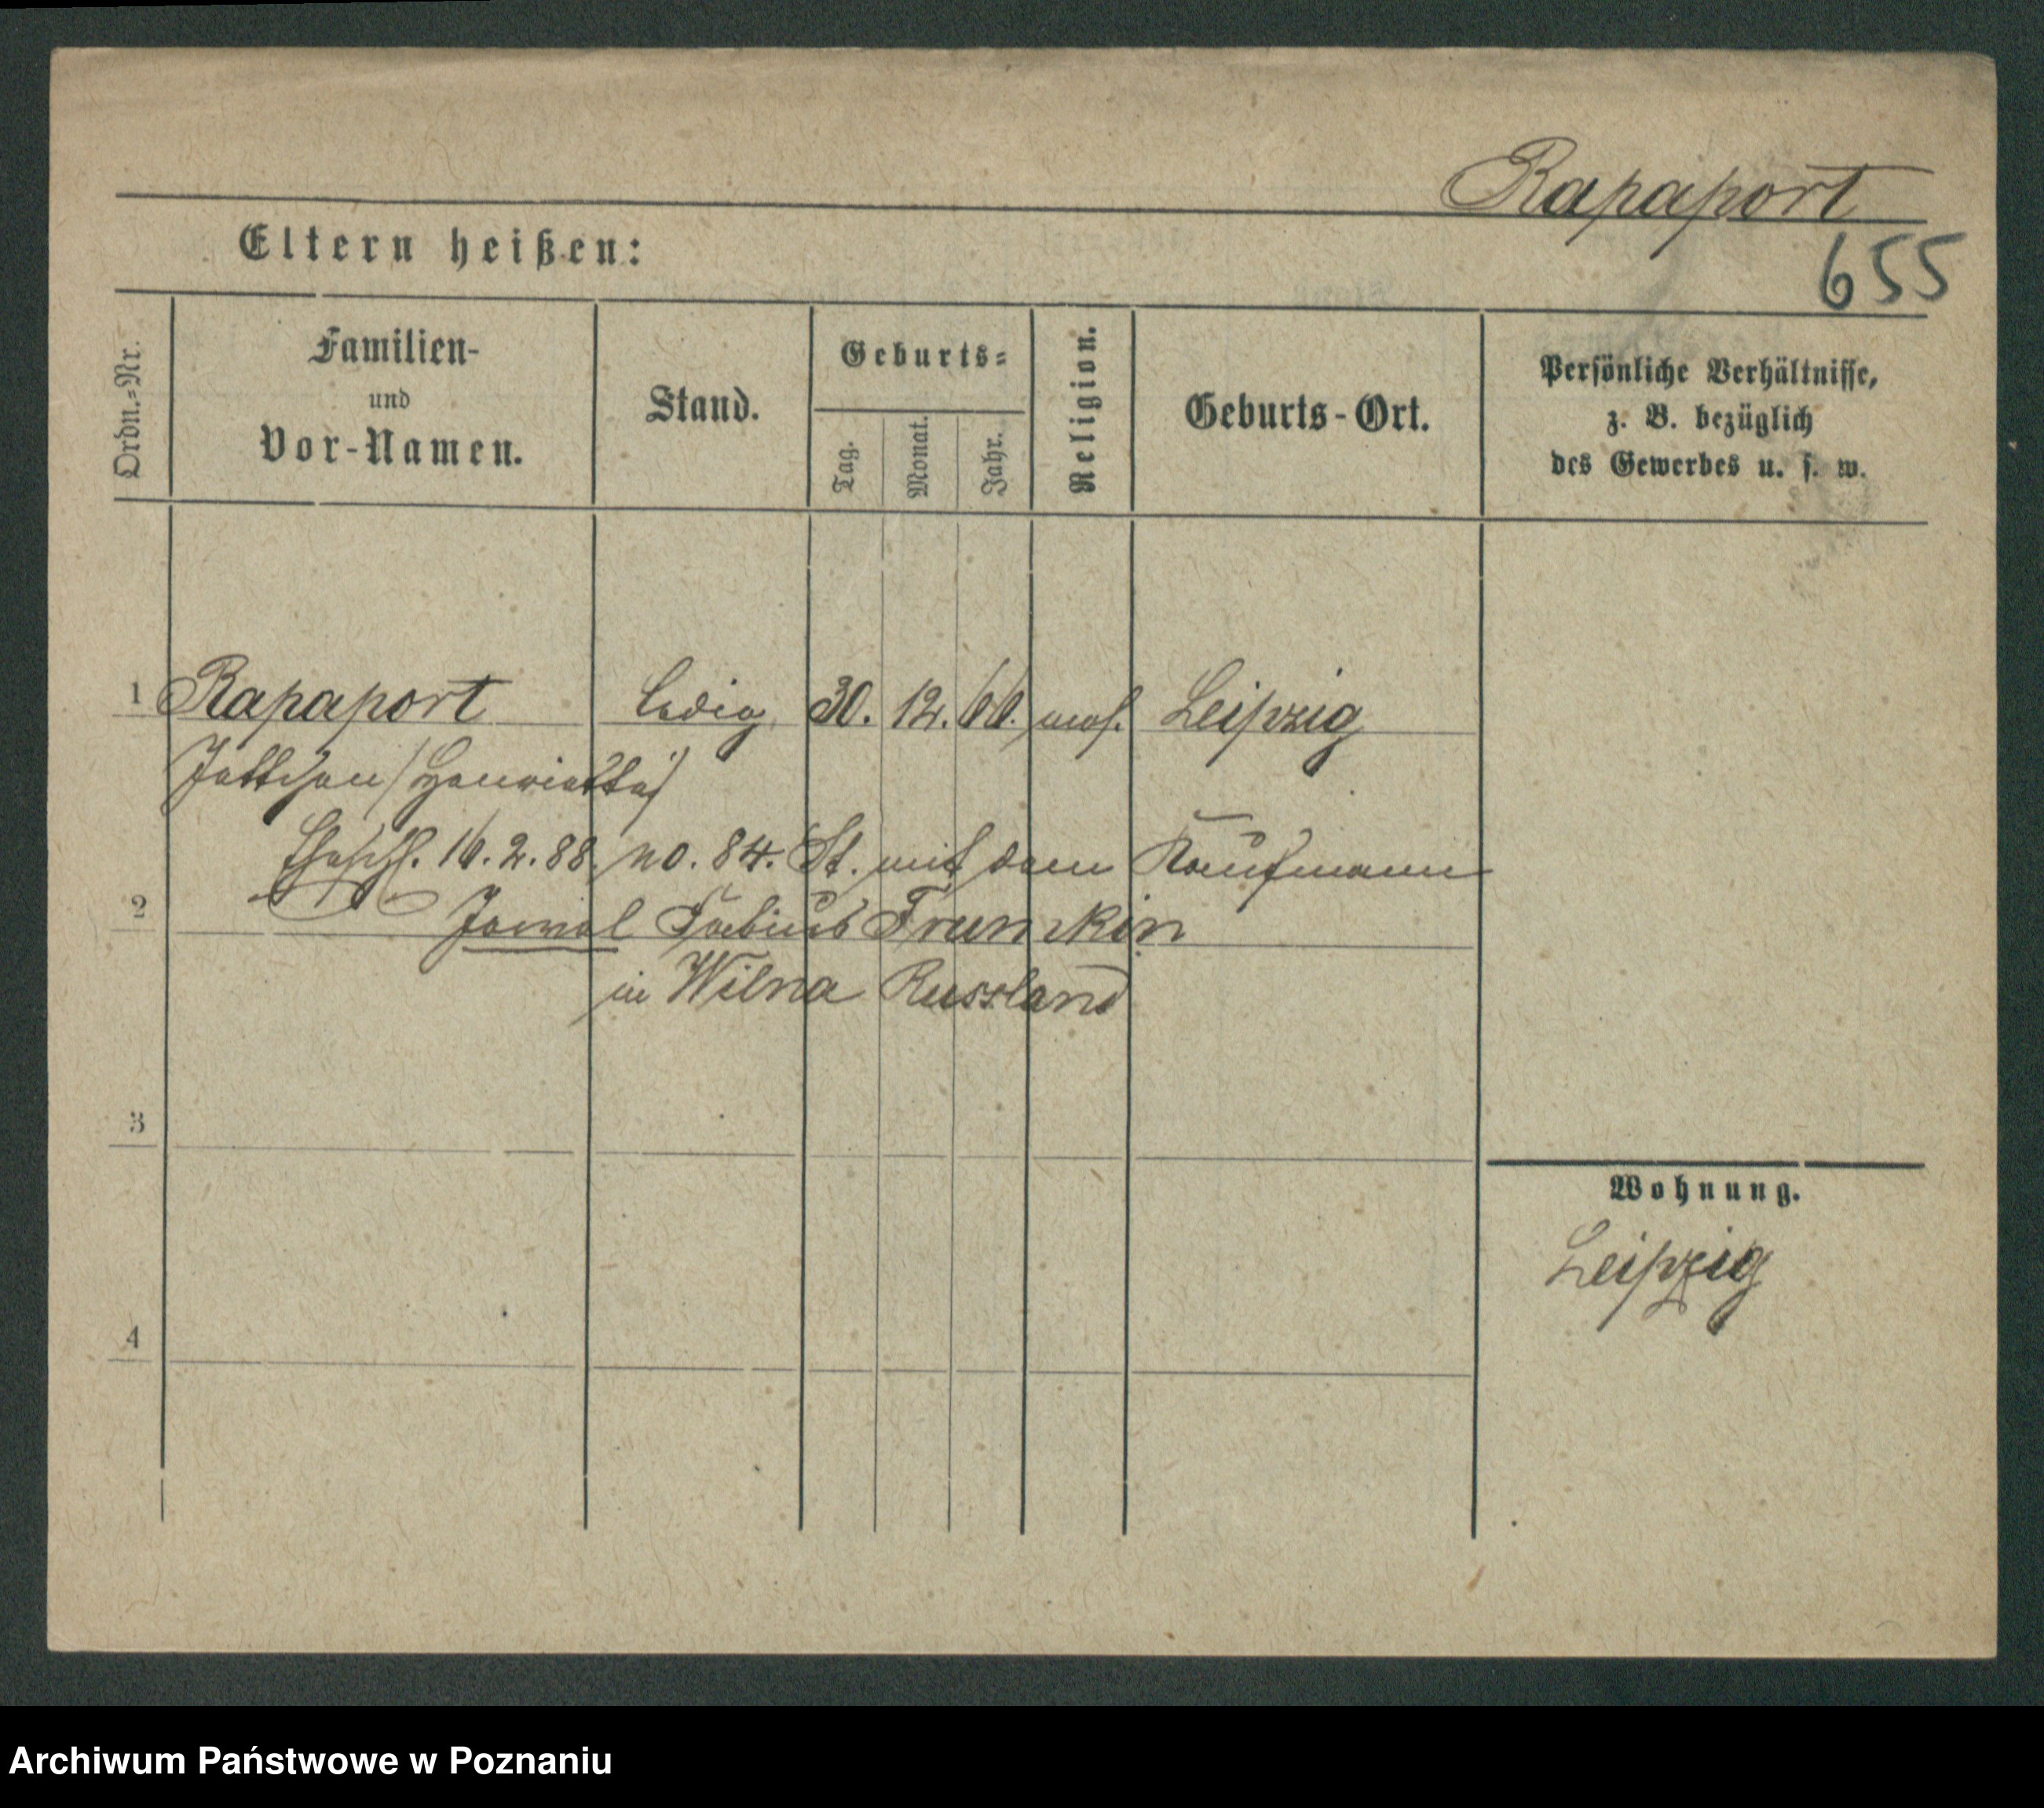 Rapaport
655
Eltern heißen:
Ordn.=Nr.
Familien-
und
Vor-Namen.
Stand.
Geburts=
Tag.
Monat.
Jahr.
Religion.
Geburts-Ort.
Persönliche Verhältnisse,
z. B. bezüglich
des Gewerbes u. s. w.
1 Rapaport ledig 30. 12. 66. mos. Leipzig
Jettchen (Henriette)
Eheschl. 16. 2. 88. no. 84. St. mit dem Kaufmann
2
Fabius Frumkin
in Wilna Russland
3
Wohnung.
Leipzig
4
Archiwum Państwowe w Poznaniu